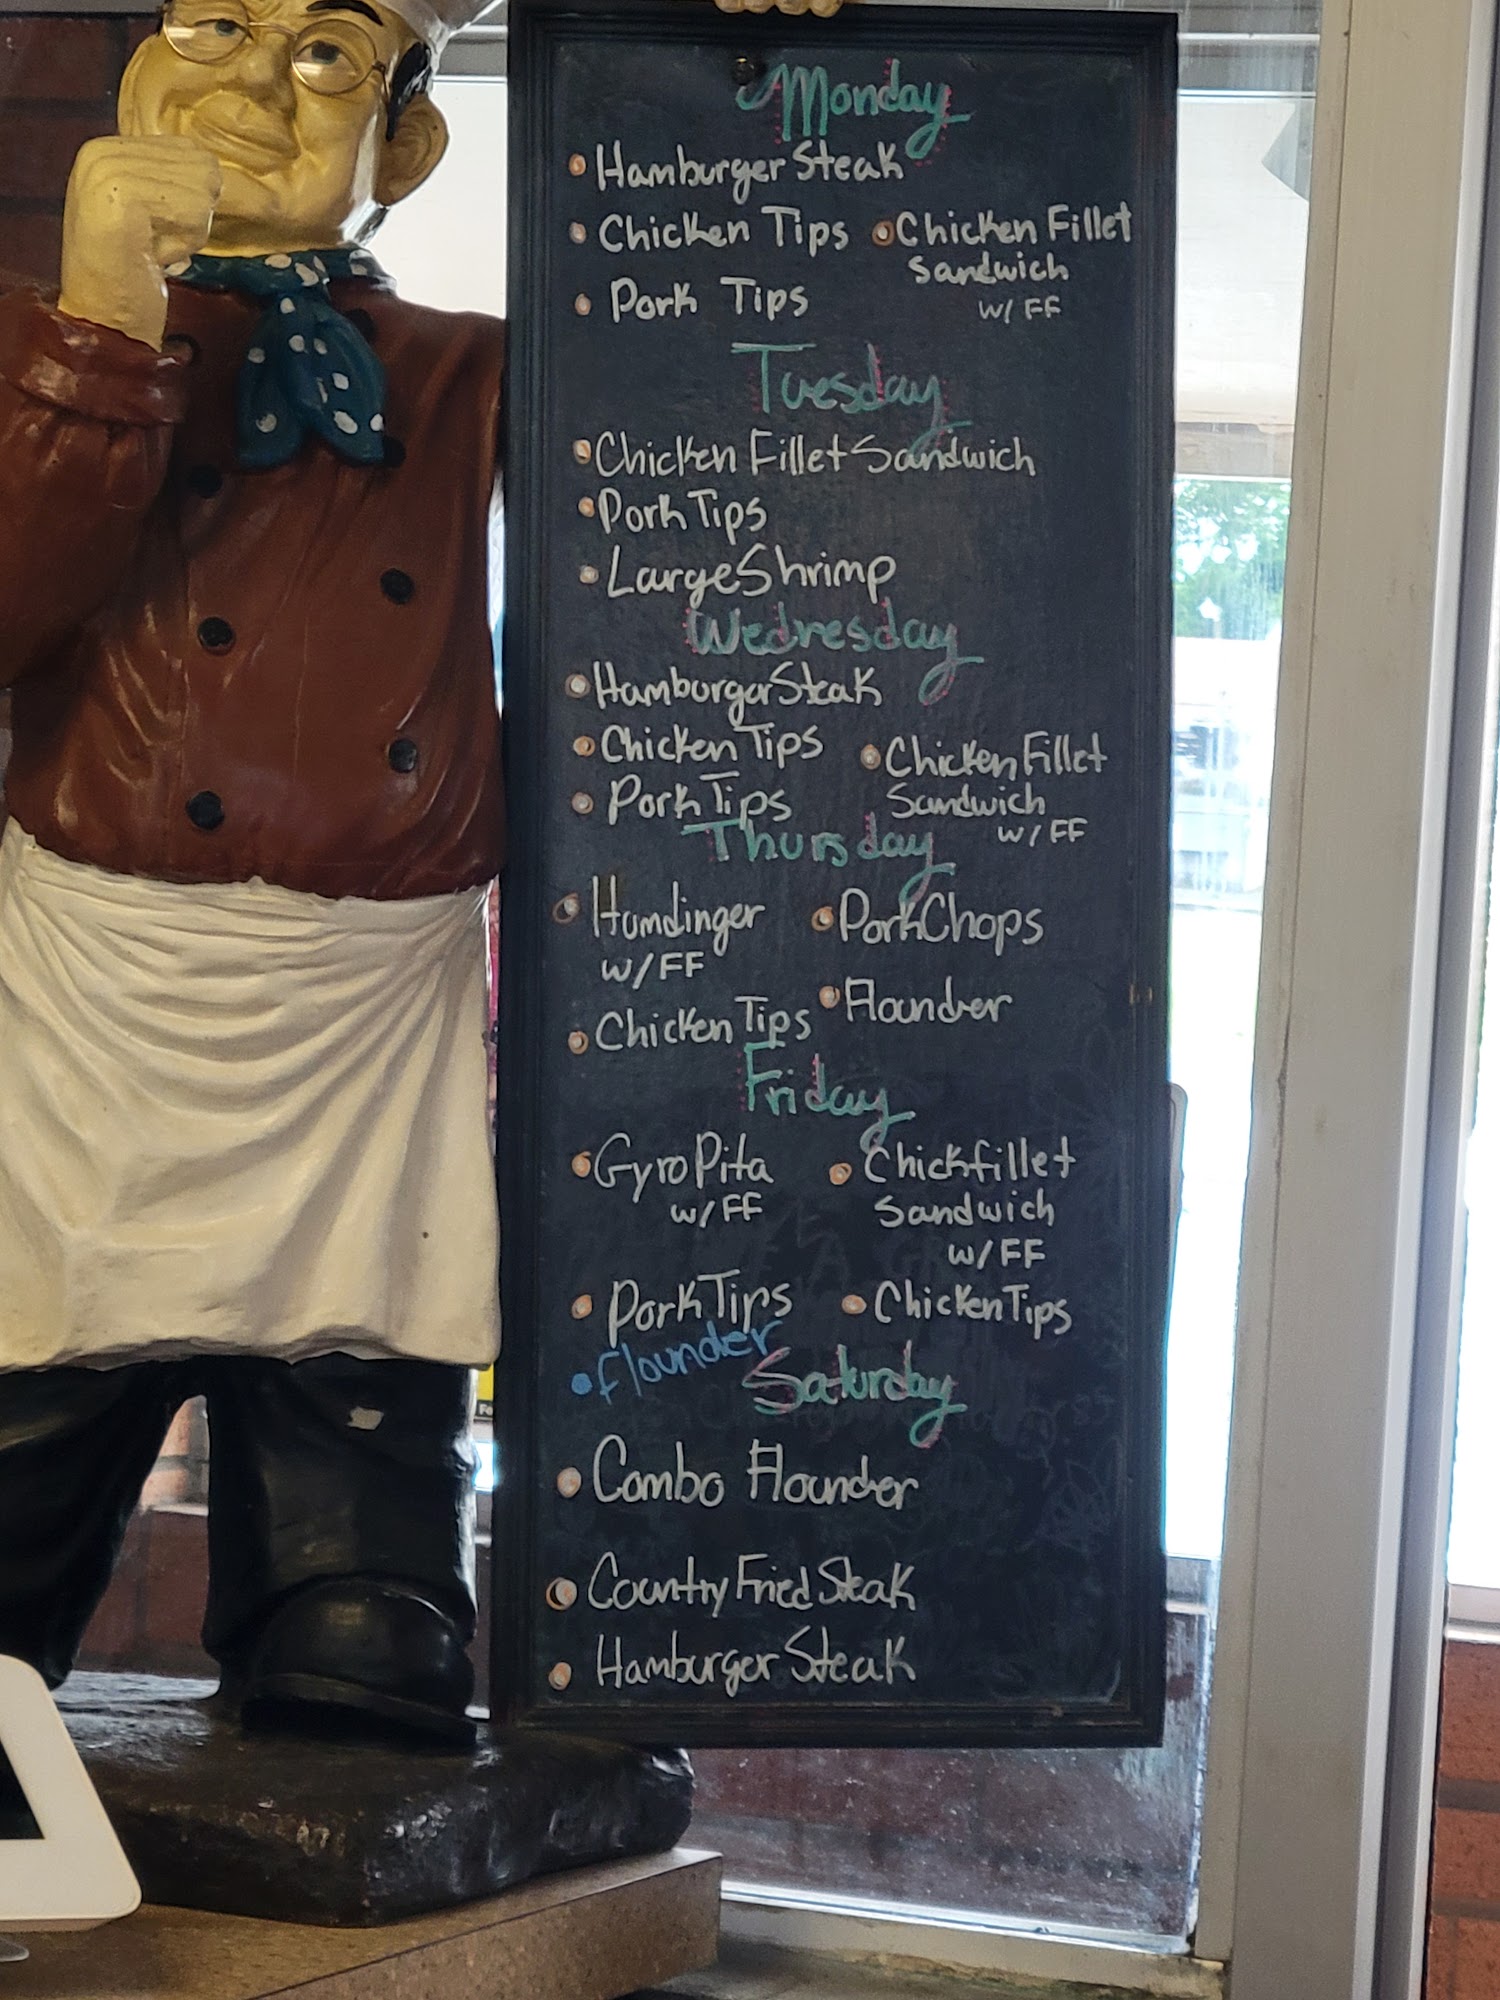 Monday
Hamburger Steak
Chicken Tips
Chicken Fillet
Sandwich
W/ FF
Pork Tips
Tuesday
Chicken Fillet Sandwich
Pork Tips
Large Shrimp
Wednesday
Hamburger Steak
Chicken Tips
Chicken Fillet
Sandwich
W/ FF
Pork Tips
Thursday
Humdinger
W/FF
Pork Chops
Chicken Tips
Flounder
Friday
Gyro Pita
W/FF
Chickfillet
Sandwich
W/FF
Pork Tips
Chicken Tips
flounder
Saturday
Combo Flounder
Country Fried Steak
Hamburger Steak